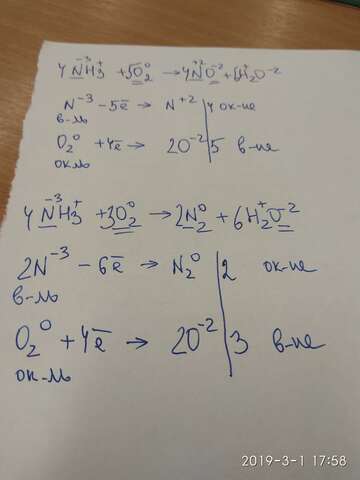 4N⁻³H₃⁺ + 5O₂⁰ → 4N⁺²O⁻² + 6H₂⁺O⁻²
N⁻³ - 5ē → N⁺² | 4 ок-ие
в-ль
O₂⁰ + 4ē → 2O⁻² | 5 в-ие
ок-ль
4N⁻³H₃⁺ + 3O₂⁰ → 2N₂⁰ + 6H₂⁺O⁻²
2N⁻³ - 6ē → N₂⁰ | 2 ок-ие
в-ль
O₂⁰ + 4ē → 2O⁻² | 3 в-ие
ок-ль
2019-3-1 17:58